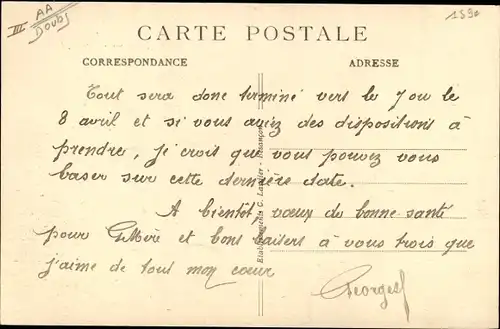 III AA
Doubs
159c
CARTE POSTALE
CORRESPONDANCE
ADRESSE
Tout sera donc terminé vers le 7 ou le
8 avril et si vous aviez des dispositions à
prendre, je crois que vous pouvez vous
baser sur cette dernière date.
A bientôt, vœux de bonne santé
pour G Mère et bons baisers à vous trois que
j'aime de tout mon cœur
Georges
Etablissements C. Lardier - Besançon